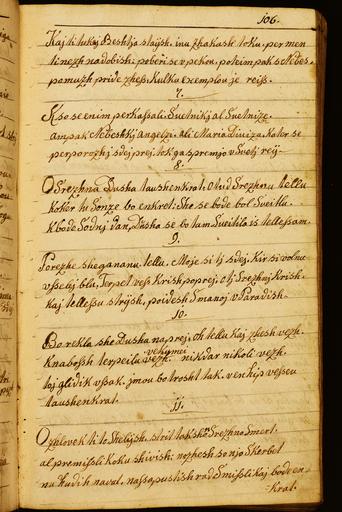 106.
Kaj ti tukaj Beshtja staijsh, inu zhakash toku, per men
ti nezh na dobish, poberi se v pekou, poteim pak s Nebes,
pomuzh pride zhess, Kulku exemplou je reiss.
7.
K so se enim perkasali Suetnikj al Suetnize.
ampak Nebeshkj Angelzi. ali Maria Diviza. Kater se
perporozhj sdej prej, tok ga spremjo v Sveti reij
8.
O Srezhna Dusha taushenkrat, O tud Srezhnu tellu
koker tu Sonze bo enkret, She se bode bol Sveitlu.
k bode Sodnj dan, Dusha se bo tam Sveitila is tellessam.
9.
Porezhe shegananu tellu. Moje si tj sdej, Kir si volnu
vsselej blu, Terpet vess Krish, poprej, o tj Srezhnij Krish
kaj tellessu strijsh, poidesh s manoj v Paradish.
10.
Bo rekla she Dusha naprej, oh tellu kaj zhesh vezh
Knabossh terpeila vezh. vekumei nikdar nikoli vezh.
taj glidik vssak. jmou bo trosht tak. ven kip vessou
taushenkrat.
11.
O zhlovek ki to Shelijsh, strit tak shen Srezhno Smert.
al premissli koku shivish: nezhesh sa njo Skerbet
nu hudih navad, na ssapustish rad Smissli kaj bode en-
krat.